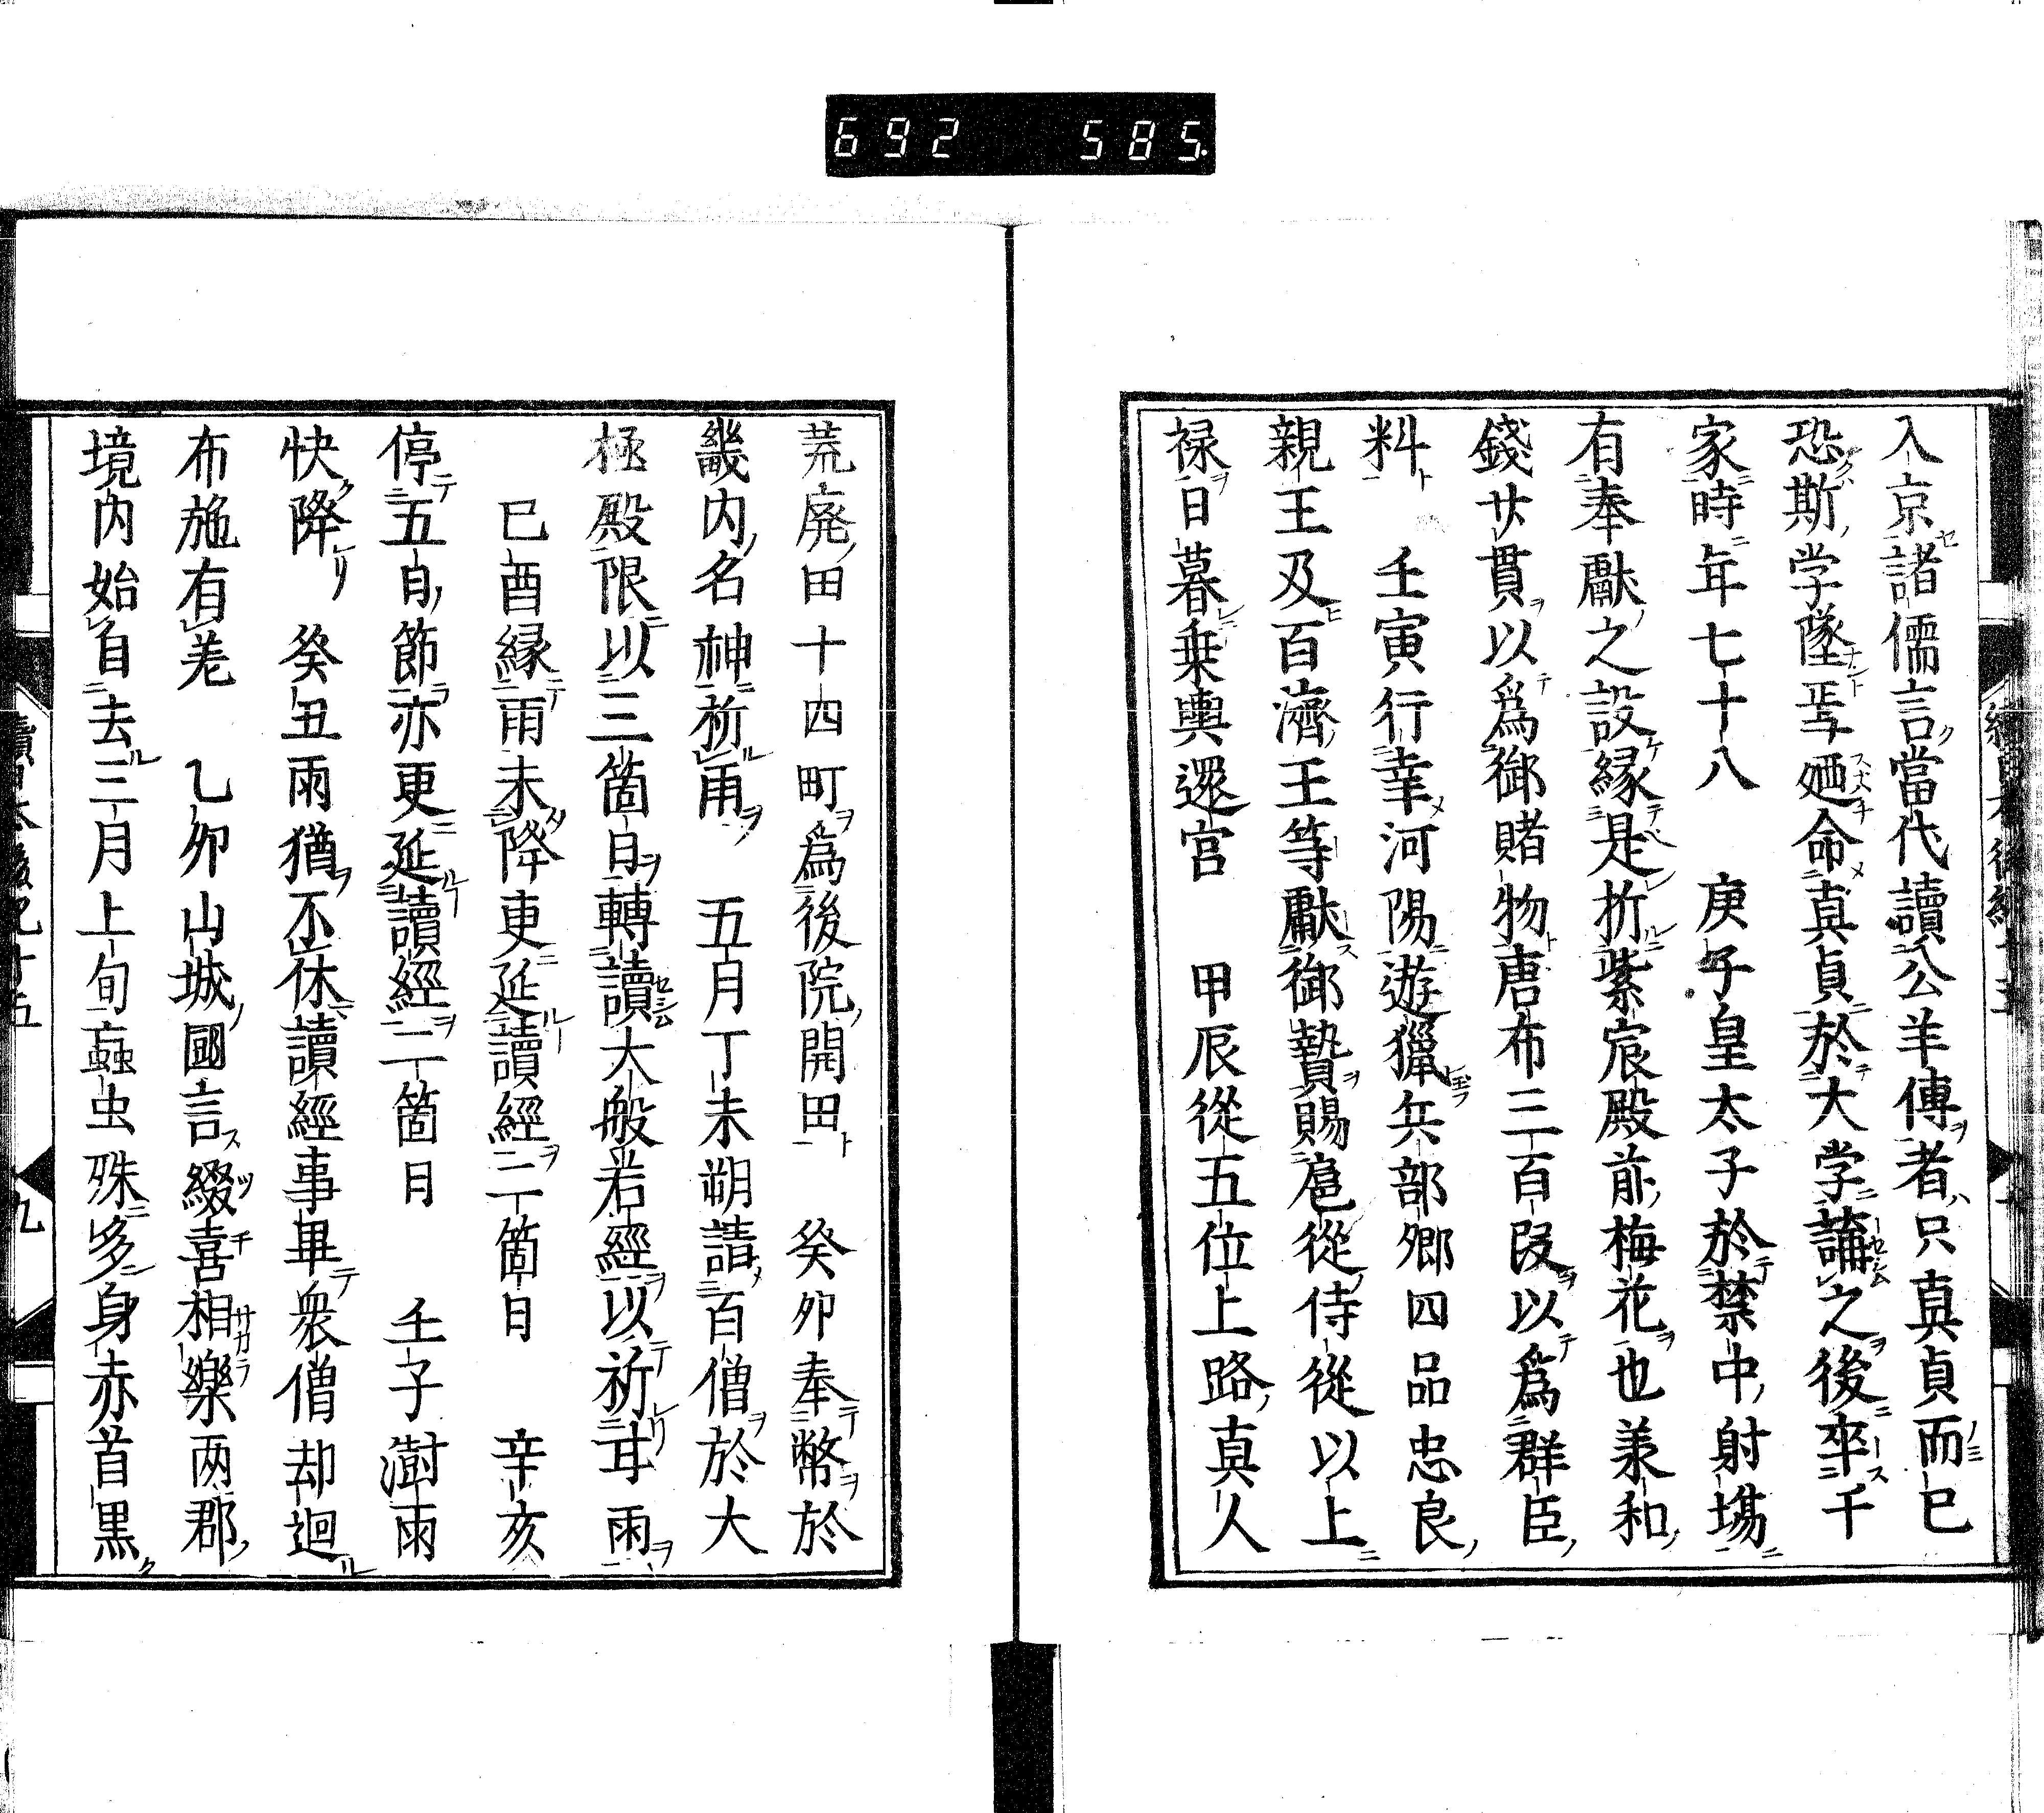 692 585
入京諸儒言當代讀公羊傳者只真貞而已
恐斯学墜焉廼命真貞於大学講之後卒千
家時年七十八 庚子皇太子於禁中射場
有奉獻之設縁是折紫宸殿前梅花也羕和
錢廿貫以爲御賭物唐布三百段以爲群臣
料 壬寅行幸河陽遊獵兵部郷四品忠良
親王及百濟王等獻御贄賜扈從侍從以上
禄日暮乗輿還宮 甲辰從五位上路真人
荒廃田十四町爲後院開田 癸卯奉幣於
畿内名神祈雨 五月丁未朔請百僧於大
極殿限以三箇日轉讀大般若經以祈甘雨
已酉縁雨未降更延讀經二箇日 辛亥
停五日節亦更延讀經二箇日 壬子澍雨
快降 癸丑雨猶不休讀經事畢衆僧却迴
布施有差 乙卯山城國言綴喜相樂两郡
境内始自去三月上旬蝱虫殊多身赤首黒